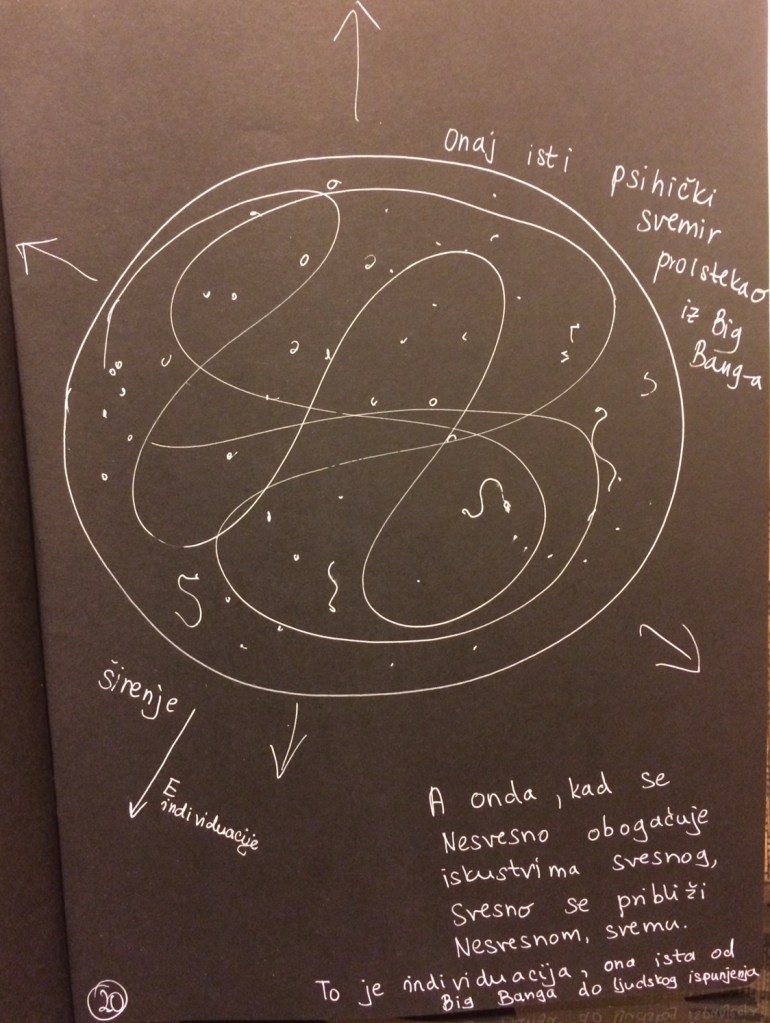 Onaj isti psihički
svemir
proistekao
iz Big
Bang-a
širenje
E
individuacije
A onda, kad se
Nesvesno obogaćuje
iskustvima svesnog,
Svesno se približi
Nesvesnom, svemu.
To je individuacija, ona ista od
Big Banga do ljudskog ispunjenja
20